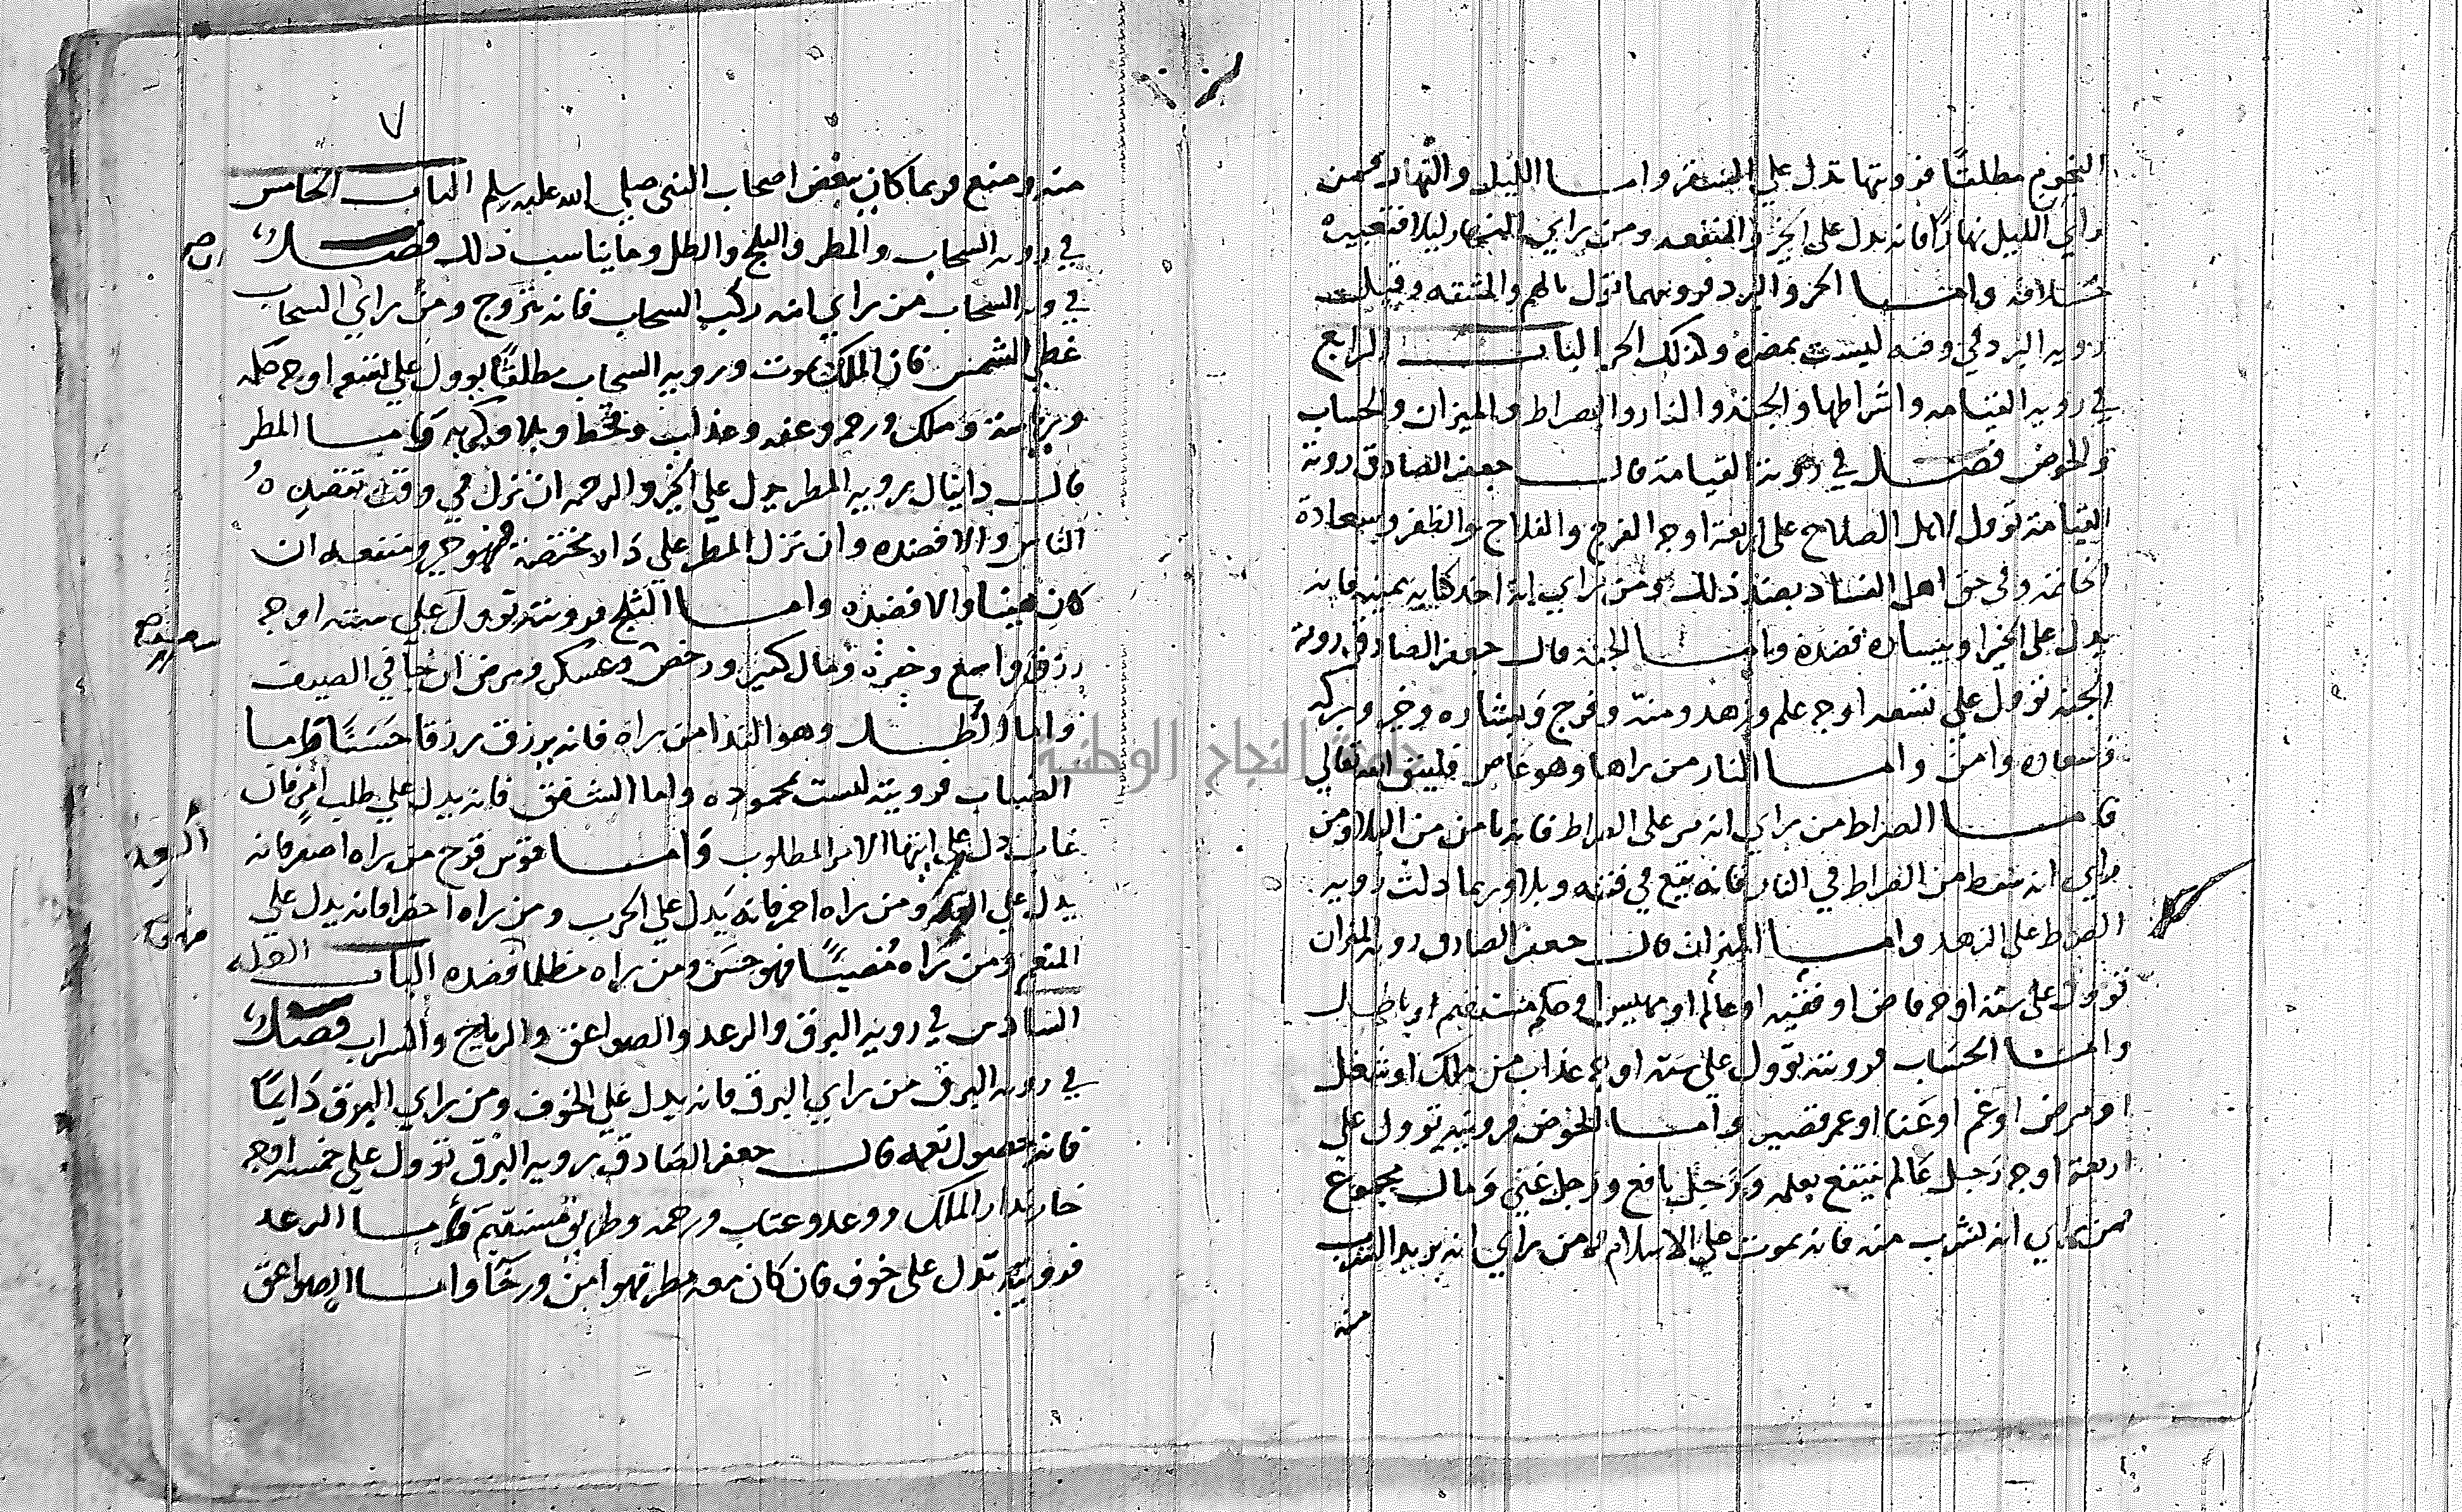 النجوم مطلقًا فرويتها تدل علي السفر وامـا الليل والنهار فمن
راي الليل نهارًا فانه يدل علي الخير والمنفعه ومن راي النهار ليلا فتعبيره
خلافه وامـا الحر والبرد فرويهما تؤل بالهم والمشقه وقيل
رويه البرد في وقته ليست بمضره وكذلك الحر البـاب الرابع
في رويه القيامه واشراطها والجنه والنار والصراط والميزان والحساب
والحوض فصـل في روية القيامة قالـ جعفر الصادق روية
القيامة تؤول لاهل الصلاح علي اربعة اوجه الفرج والفلاح والظفر وسعادة
الخاتمه وفي حق اهل الفساد بضد ذلك ومن راي انه اخذ كتابه بيمينه فانه
يدل علي الخير او بيساره فضده وامـا الجنة قال جعفر الصادق روية
الجنه تؤول علي تسعه اوجه علم وزهد ومنة وفرج وبشاره وخير وبركه
وسعاده وامن وامـا النار من راها وهو عاص فليتق الله تعالي
وامـا الصراط من راي انه مر علي الصراط فانه يامن من البلا ومن
راي انه سقط من الصراط في النار فانه يقع في فتنه وبلا وربما دلت رويه
الصراط علي الزهد وامـا الميزان قال جعفر الصادق رويه الميزان
تؤول علي سته اوجه قاض او فقيه او عالم او مهندس او حكم مستقيم او باطل
وامـا الحساب فرويته تؤول علي سته اوجه عذاب من ملك او شغل
او مرض او غم او عنا او عمر قصير وامـا الحوض فرويته تؤول علي
اربعة اوجه رجل عالم ينتفع بعلمه ورجل يافع ورجل غني ومال مجموع
فمن راي انه شرب منه فانه يموت علي الاسلام ومن راي انه يريد الشرب
منه
٧
منه ومنع فربما كان يبغض اصحاب النبي صلي الله عليه وسلم البـاب الخامس
في رويه السحاب والمطر والثلج والطل وما يناسب ذلك فصـل
في رويه السحاب من راي انه ركب السحاب فانه يتزوج ومن راي السحاب
غطي الشمس فان الملك يموت ورويه السحاب مطلقًا يوول علي تسعه اوجه حكمه
ورياسة وملك ورحمه وعفه وعذاب وقحط وبلا وكربه وامـا المطر
قال دانيال رويه المطر يدل علي الخير والرحمه ان نزل في وقت تقصده
الناس والا فضده وان نزل المطر علي دار مختصة فهو خير ومنفعه ان
كان هينا والا فضده وامـا الثلج فرويته تؤول علي سته اوجه
رزق واسع وخضره ومال كثير ورخص وعسكر ومرض ان جا في الصيف
واما الطـل وهو الندا من راه فانه يرزق رزقا حسنًا وامـا
الضباب فرويته ليست بمحموده واما الشفق فانه يدل علي طلب امر فان
غاب دل علي انتها الامر المطلوب وامـا قوس قزح من راه اصفر فانه
يدل علي ومن راه احمر فانه يدل علي الحرب ومن راه اخضر فانه يدل علي
النعم ومن راه مُضيئًا فهو حسن ومن راه مظلما فضده البـاب
السادس في رويه البرق والرعد والصواعق والرياح والسراب فصـل
في رويه البرق من راي البرق فانه يدل علي الخوف ومن راي البرق دايمًا
فانه حصول نعمه قالـ جعفر الصادق رويه البرق تؤول علي خمسه اوجه
خازندار الملك ووعد وعتاب ورحمه وطريق مستقيم وامـا الرعد
فرويته تدل علي خوف فان كان معه مطر فهو امن ورخا وامـا الصواعق
جامعة النجاح الوطنية